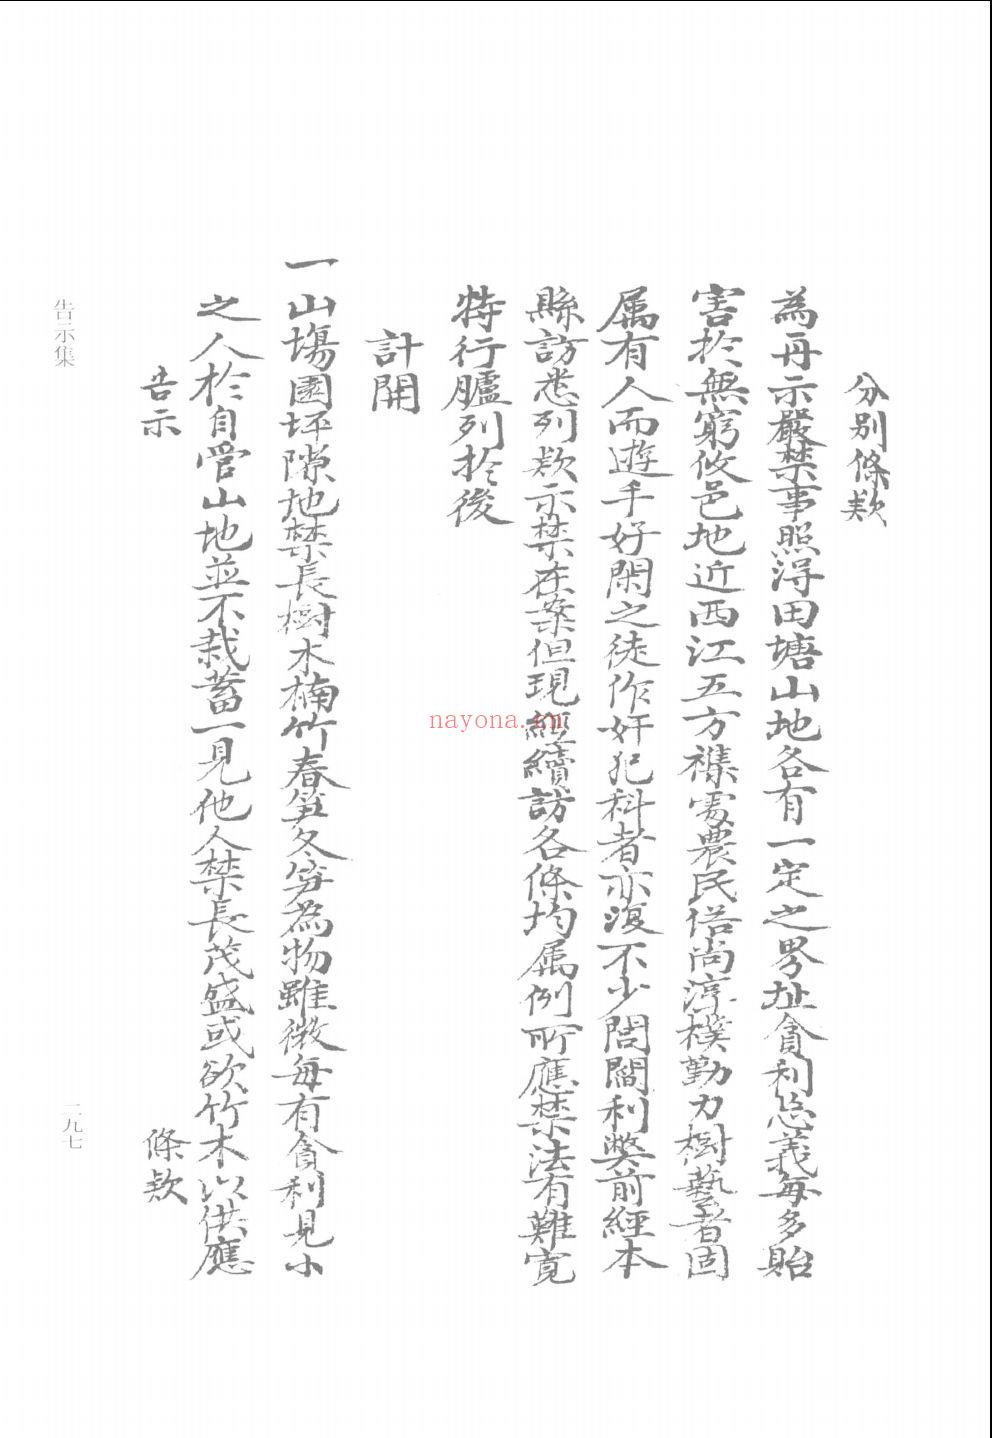 分别條欵
為再示嚴禁事照淂田塘山地各有一定之界址貪利忘義每多貽
害於無窮攸邑地近西江五方襍處農民俗尚淳樸勤力樹藝者固
属有人而遊手好閑之徒作奸犯科者亦復不少閭閻利獘前經本
縣訪悉列欵示禁在案但現經續訪各條均属例所應禁法有難寛
特行臚列於後
計開
一山塲園坪隙地禁長樹木楠竹春笋冬笋為物雖微每有貪利見小
之人於自管山地並不栽蓄一見他人禁長茂盛或欲竹木以供應
告示
條欵
告示集
二九七
nayona.cn